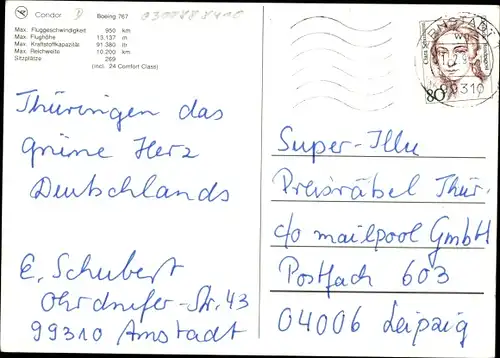 Condor D Boeing 767
Max. Fluggeschwindigkeit 950 km
Max. Flughöhe 13.137 m
Max. Kraftstoffkapazität 91.380 lit
Max. Reichweite 10.200 km
Sitzplätze 269
(incl. 24 Comfort Class)
Thüringen das
Grüne Herz
Deutschlands
E. Schubert
Ohrdrufer-Str. 43
99310 Arnstadt
80
99310
Super-Illu
Preisrätsel Thür.
c/o mailpool GmbH
Postfach 603
04006 Leipzig